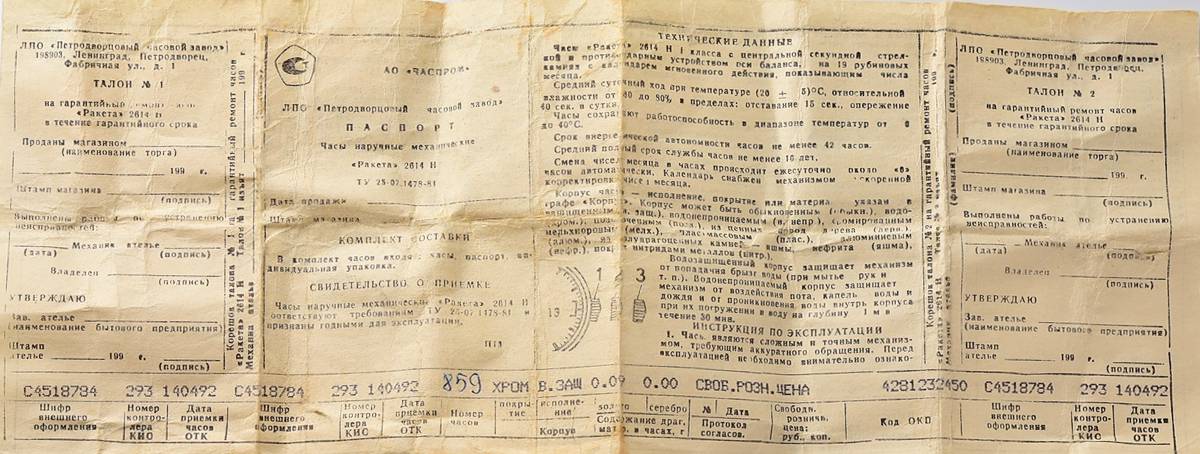 ЛПО «Петродворцовый часовой завод»
198903, Ленинград, Петродворец,
Фабричная ул., д. 1
ТАЛОН № 1
на гарантийный ремонт
«Ракета» 2614 Н
в течение гарантийного срока
Проданы магазином
(наименование торга)
199 г.
Штамп магазина
(подпись)
Выполнены работы по устранению
неисправностей:
Механик ателье
(дата) (подпись)
Владелец
(подпись)
УТВЕРЖДАЮ
Зав. ателье
(наименование бытового предприятия)
Штамп
ателье 199 г.
(подпись)
Корешок талона № 1 на гарантийный ремонт часов
«Ракета» 2614 Н Талон изъят 199 г.
Механик ателье
АО «ЧАСПРОМ»
ЛПО «Петродворцовый часовой завод»
ПАСПОРТ
Часы наручные механические
«Ракета» 2614 Н
ТУ 25-07.1478-81
Дата продажи
Штамп магазина
КОМПЛЕКТ ПОСТАВКИ
В комплект часов входят: часы, паспорт, индивидуальная упаковка.
СВИДЕТЕЛЬСТВО О ПРИЕМКЕ
Часы наручные механические «Ракета» 2614 Н
соответствуют требованиям ТУ 25-07.1478-81 и
признаны годными для эксплуатации.
ТЕХНИЧЕСКИЕ ДАННЫЕ
Часы «Ракета» 2614 Н 1 класса с центральной секундной стрел-
кой и противоударным устройством оси баланса, на 19 рубиновых
камнях с календарем мгновенного действия, показывающим числа
месяца.
Средний суточный ход при температуре (20 ± 5)°С, относительной
влажности от 30 до 80% в пределах: отставание 15 сек., опережение
40 сек. в сутки.
Часы сохраняют работоспособность в диапазоне температур от 0
до 40°С.
Срок энергетической автономности часов не менее 42 часов.
Средний полный срок службы часов не менее 10 лет.
Смена чисел месяца в часах происходит ежесуточно около «0»
часов автоматически. Календарь снабжен механизмом ускоренной
корректировки чисел месяца.
Корпус часов — исполнение, покрытие или материал указан в
графе «Корпус». Корпус может быть обыкновенным (обыкн.), водо-
Водозащищенный корпус защищает механизм
от попадания брызг воды (при мытье рук и
т. п.). Водонепроницаемый корпус защищает
механизм от воздействия пота, капель воды и
дождя и от проникновения воды внутрь корпуса
при их погружении в воду на глубину 1 м в
течение 30 мин.
13 1 2 3
ИНСТРУКЦИЯ ПО ЭКСПЛУАТАЦИИ
1. Часы являются сложным и точным механиз-
мом, требующим аккуратного обращения. Перед
эксплуатацией необходимо внимательно ознако-
Корешок талона № 2 на гарантийный ремонт часов
«Ракета» 2614 Н
(фамилия) (подпись)
ЛПО «Петродворцовый часовой завод»
198903, Ленинград, Петродворец,
Фабричная ул., д. 1
ТАЛОН № 2
на гарантийный ремонт часов
«Ракета» 2614 Н
в течение гарантийного срока
Проданы магазином
(наименование торга)
199 г.
Штамп магазина
(подпись)
Выполнены работы по устранению
неисправностей:
Механик ателье
(дата) (подпись)
Владелец
(подпись)
УТВЕРЖДАЮ
Зав. ателье
(наименование бытового предприятия)
Штамп
ателье 199 г.
(подпись)
С4518784 293 140492 С4518784 293 140492 859 ХРОМ В.ЗАЩ 0.09 0.00 СВОБ.РОЗН.ЦЕНА 4281232450 С4518784 293 140492
Шифр внешнего оформления
Номер контролера КИО
Дата приемки часов ОТК
Шифр внешнего оформления
Номер контролера КИО
Дата приемки ОТК
Номер часов
покрытие
исполнение
Корпус
золото серебро
Содержание драг. мат. в часах, г
№ Дата
Протокол согласов.
Свободн. рознич. цена: руб., коп.
Код ОКП
Шифр внешнего оформления
Номер контролера КИО
Дата приемки часов ОТК